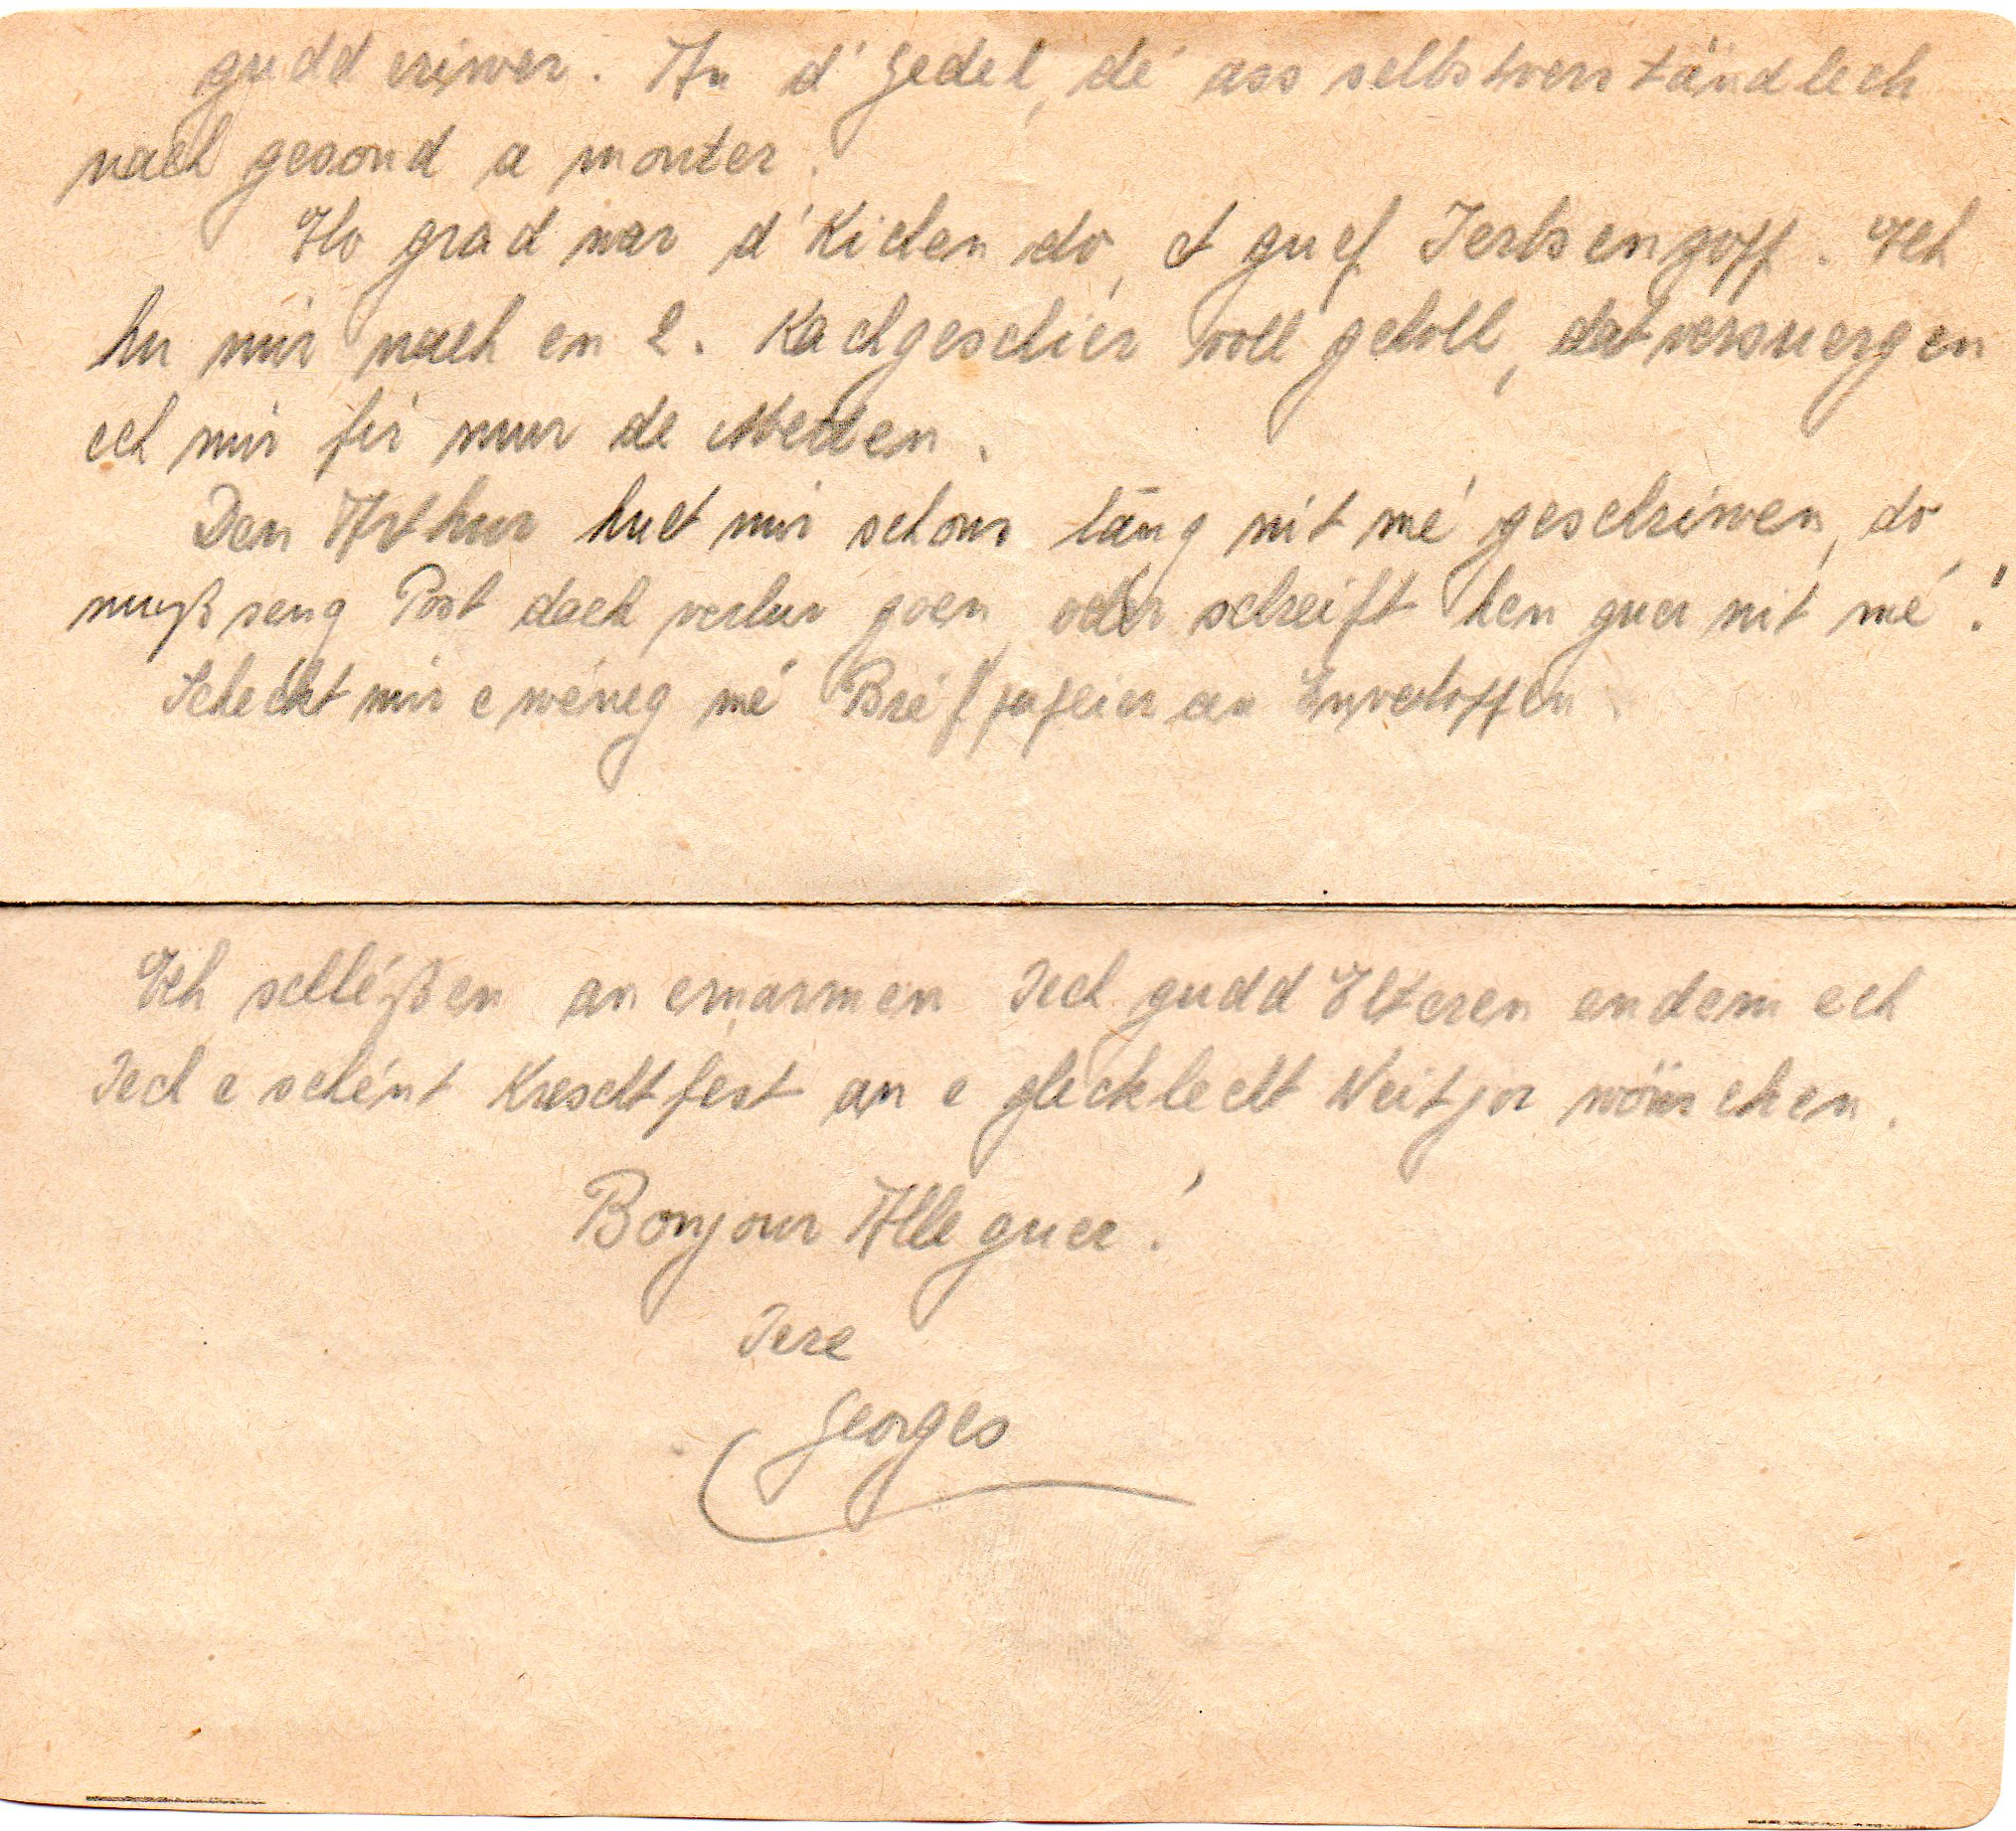 gudd eriwer. An d'Gedel, dé ass selbstverständlech
nach gesond a monter.
Elo grad war d'Kichen do, et guef Ierbsenzopp. Ech
hu mir nach en 2. Kachgeschier voll geholl, dat versuergen
ech mir fir muer de Metten.
Den Arthur huet mir schons läng nit mé geschriwen, do
muß seng Post dach verluer goen oder schreift hen guer nit mé!
Scheckt mir e wéneg mé Bréfpapeier an Enveloppen.
Ech schléßen an ernarmen Iech gudd Elteren endem ech
Iech e schént Kreschtfest an e glecklecht Neitjor wönschen.
Bonjour Alleguer!
Iere
Georges